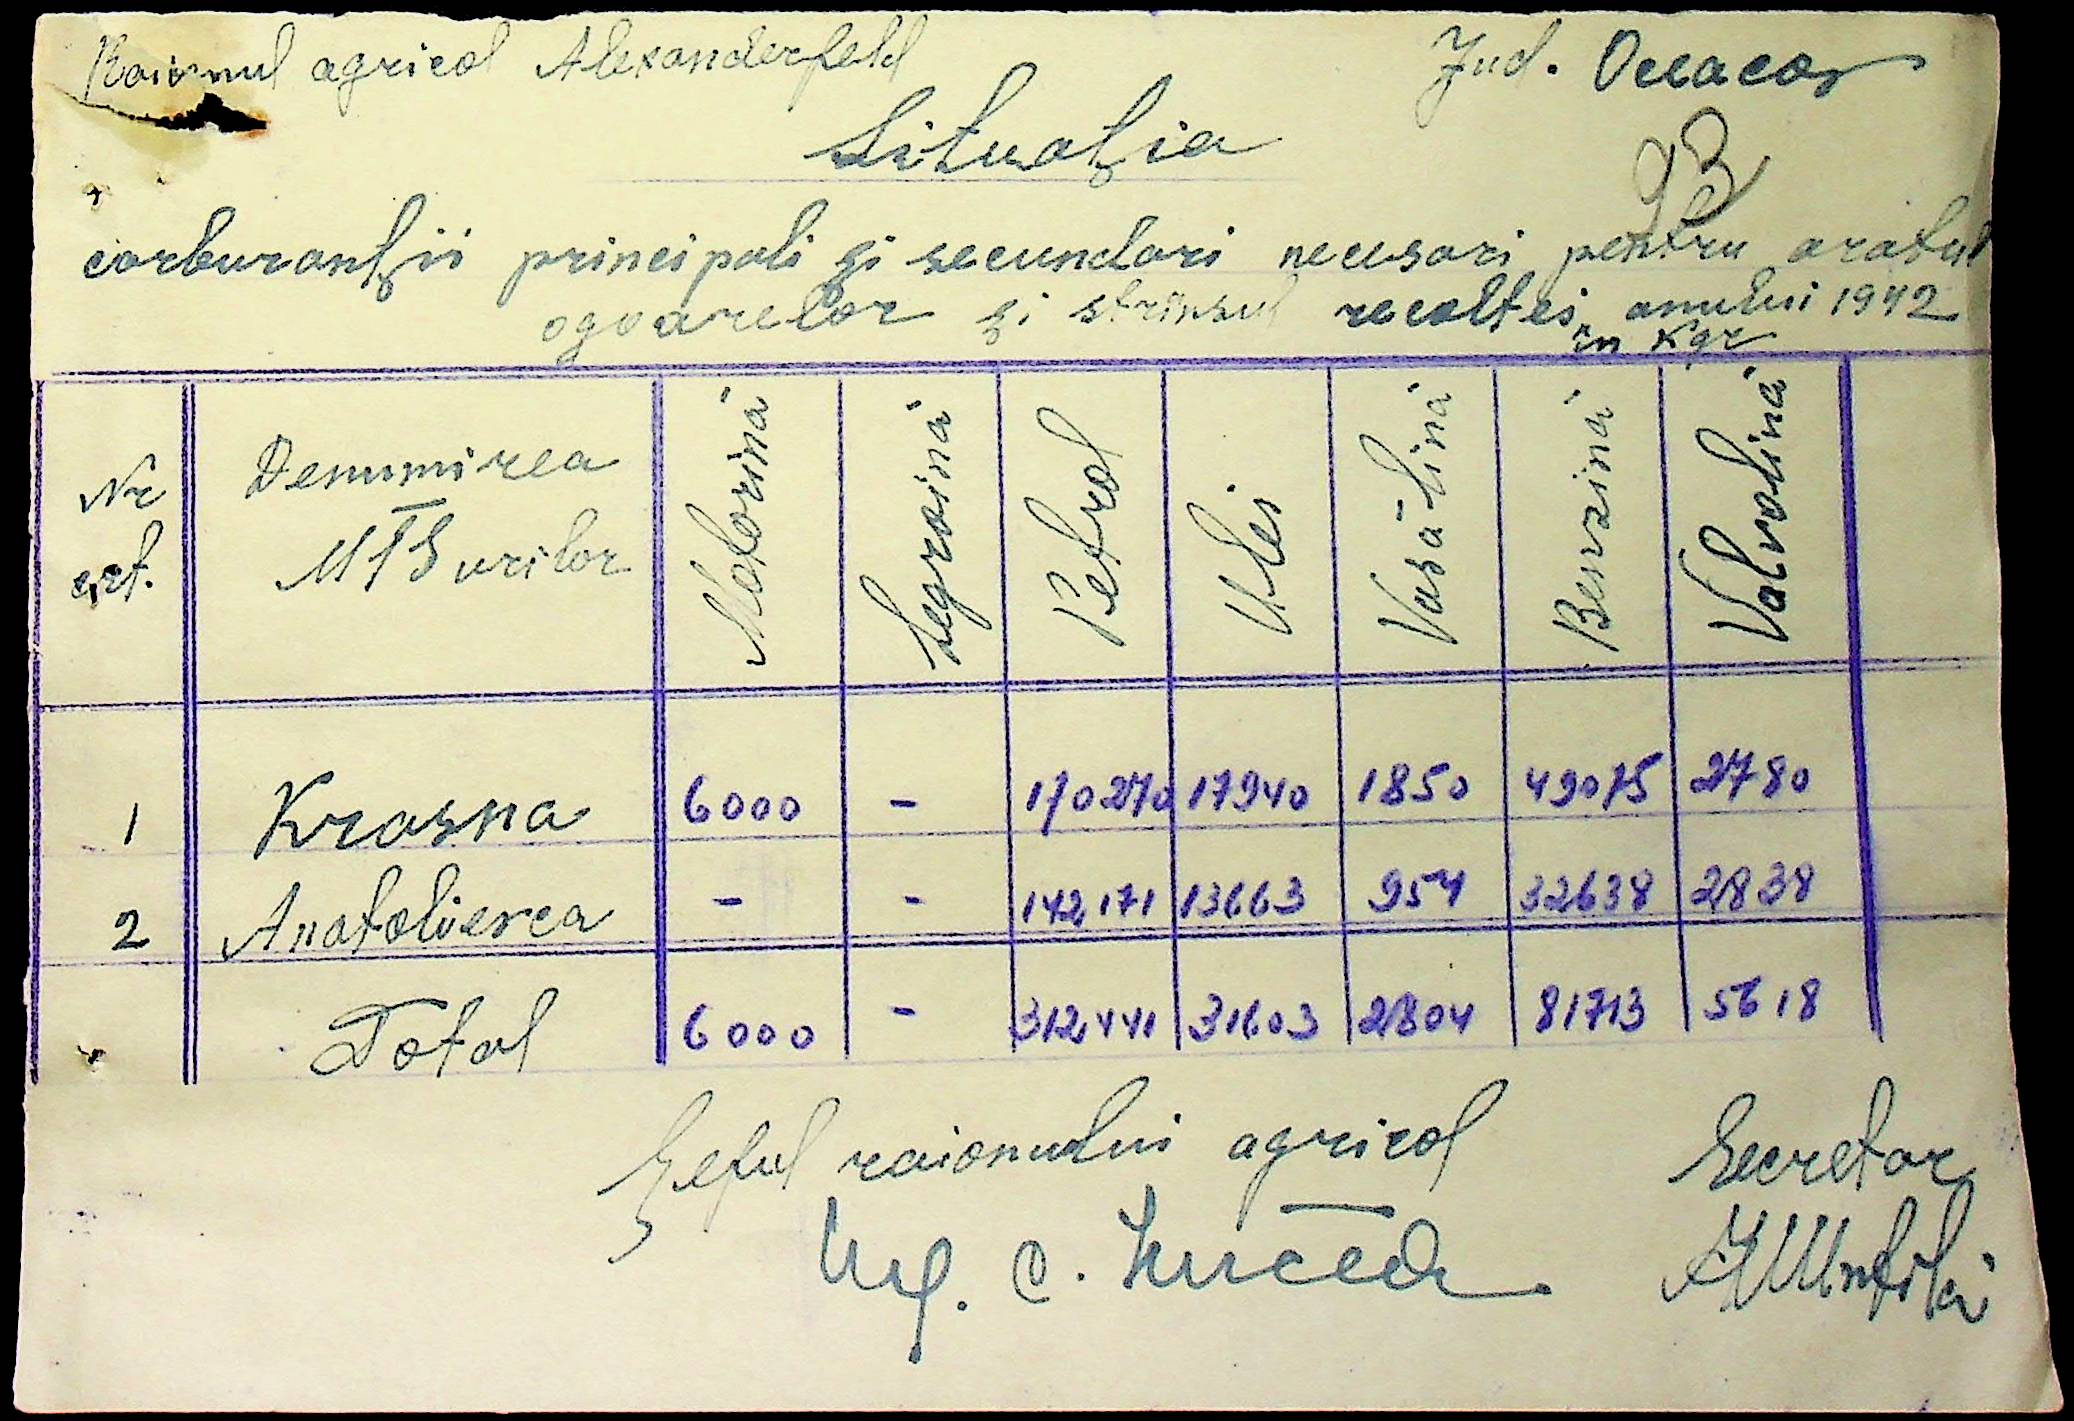 Raionul agricol Alexanderfeld Jud. Oceacov
Situația
93
carburanții principali și secundari necesari pentru aratul
ogoarelor și strînsul recoltei anului 1942
în Kgr
Nr crt. Denumirea MTSurilor Motorină Legroină Petrol Ulei Vasă-lină Benzină Valvolină
1 Krasna 6000 - 170270 17940 1850 49075 2780
2 Anatolievca - - 142,171 13663 954 32638 2838
Total 6000 - 312,441 31603 2804 81713 5618
Șeful raionului agricol Secretar
Ing. C.